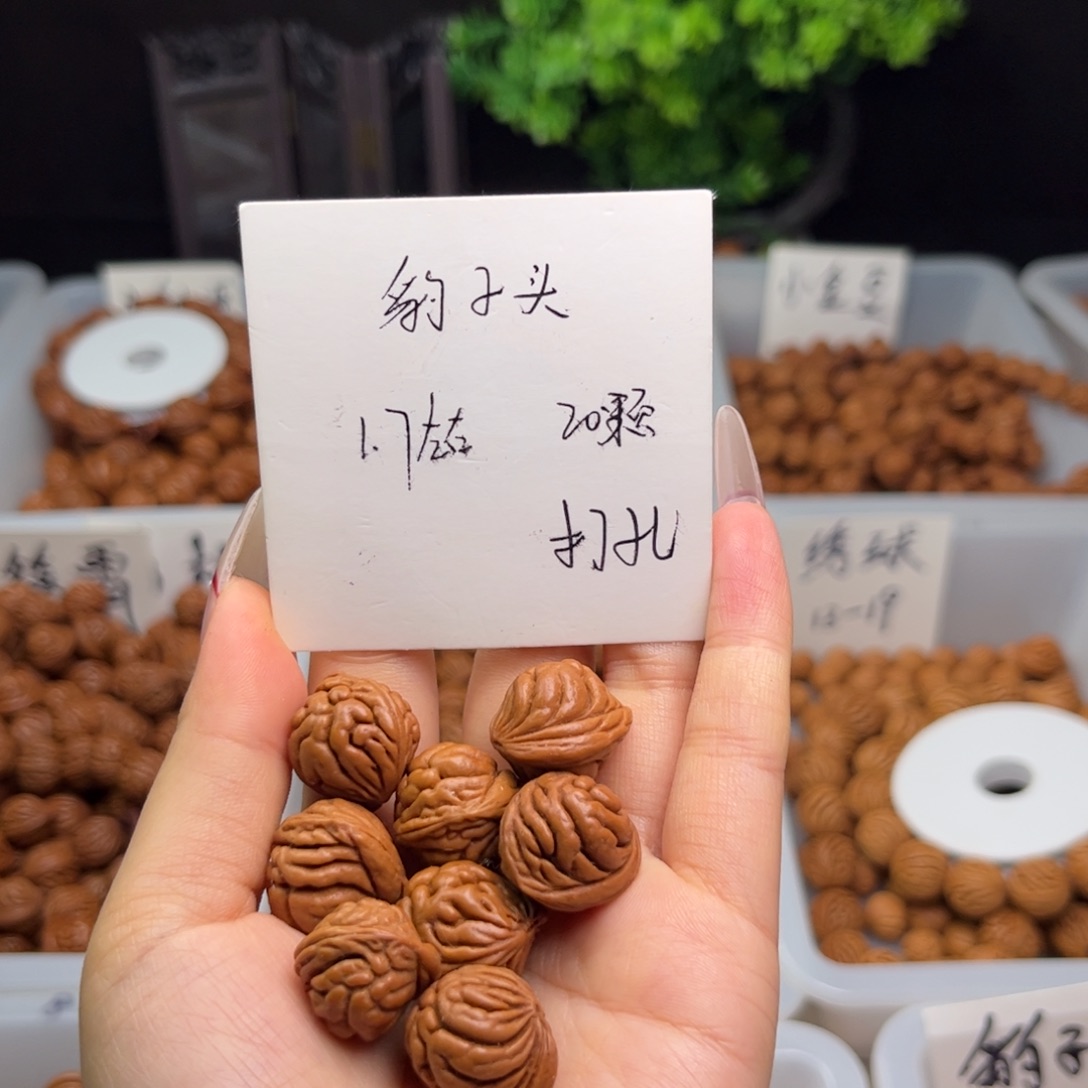 豹子头
1.7左右 20颗
打孔
小金豆
绣球
豹子